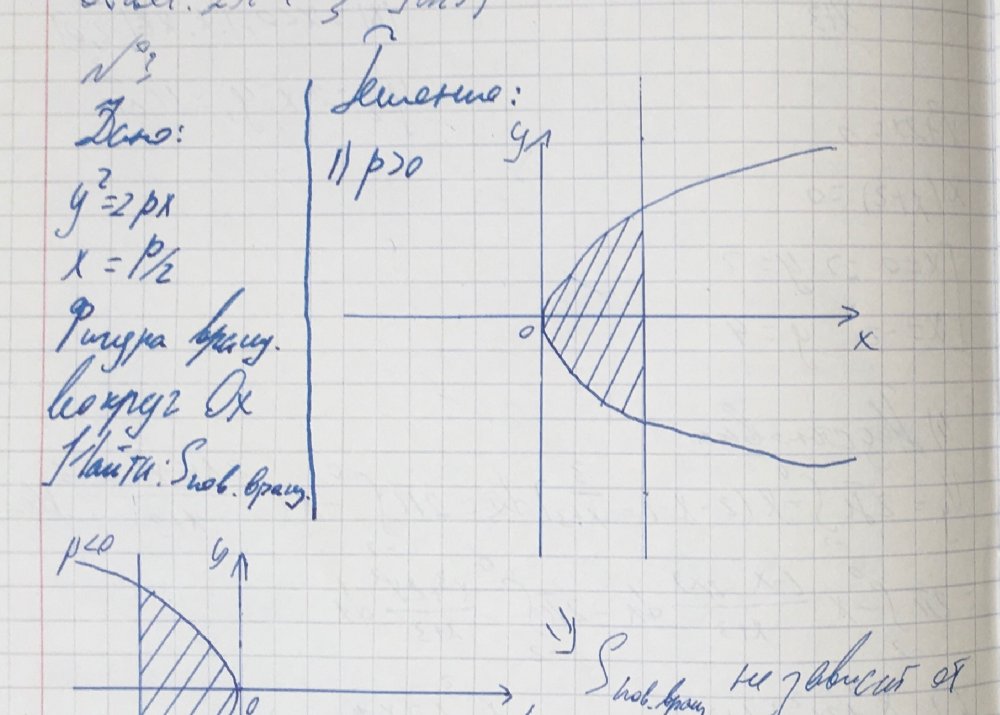 №3
Дано:
y²=2px
x = p/2
Фигура вращ.
вокруг Ox
Найти: Sпов. вращ.
Решение:
1) p>0
y
0
x
p<0
y
0
=> Sпов. вращ не зависит от